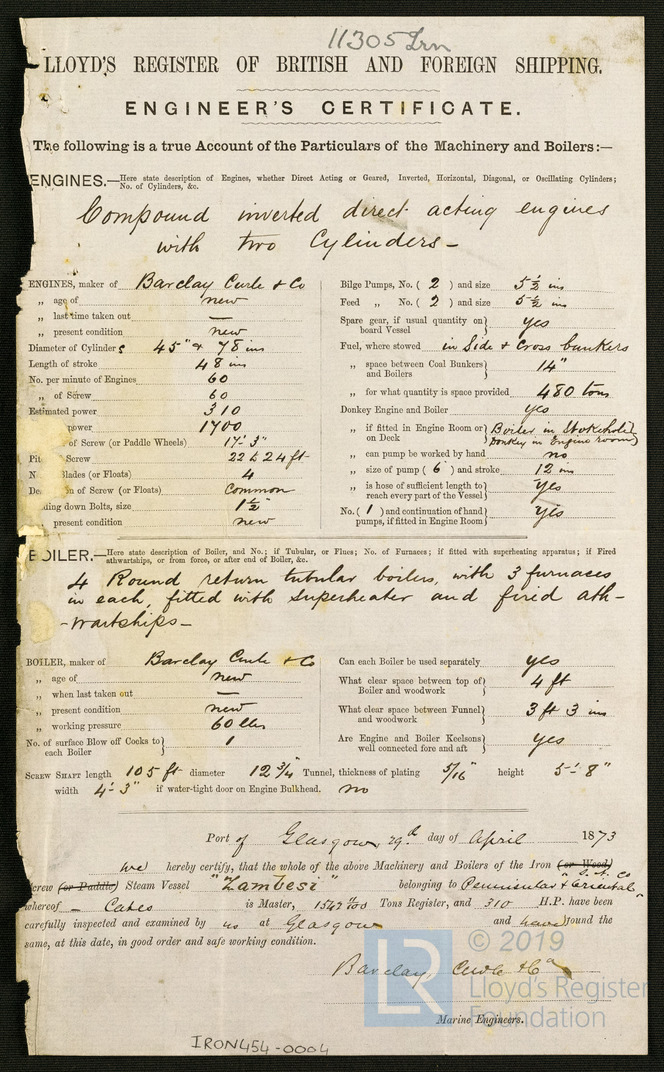 11305 Irn
LLOYD'S REGISTER OF BRITISH AND FOREIGN SHIPPING.
ENGINEER'S CERTIFICATE.
The following is a true Account of the Particulars of the Machinery and Boilers:—
ENGINES.—Here state description of Engines, whether Direct Acting or Geared, Inverted, Horizontal, Diagonal, or Oscillating Cylinders;
No. of Cylinders, &c.
Compound inverted direct acting engines
with two Cylinders—
ENGINES, maker of Barclay Curle & Co
„ age of new
„ last time taken out —
„ present condition new
Diameter of Cylinders 45" & 78 ins
Length of stroke 48 ins
No. per minute of Engines 60
„ of Screw 60
Estimated power 310
power 1700
of Screw (or Paddle Wheels) 17'-3"
Pit Screw 22 to 24 ft
N Blades (or Floats) 4
De n of Screw (or Floats) Common
ding down Bolts, size 1½"
present condition new
Bilge Pumps, No. ( 2 ) and size 5½ ins
Feed „ No. ( 2 ) and size 5½ ins
Spare gear, if usual quantity on board Vessel } yes
Fuel, where stowed in Side & Cross bunkers
„ space between Coal Bunkers and Boilers } 14"
„ for what quantity is space provided 480 tons
Donkey Engine and Boiler yes
„ if fitted in Engine Room or on Deck } Boiler in Stokehold
Donkey in Engine room
„ can pump be worked by hand no
„ size of pump ( 6 ) and stroke 12 ins
„ is hose of sufficient length to reach every part of the Vessel } Yes
No. ( 1 ) and continuation of hand pumps, if fitted in Engine Room } Yes
BOILER.—Here state description of Boiler, and No.; if Tubular, or Flues; No. of Furnaces; if fitted with superheating apparatus; if Fired
athwartships, or from force, or after end of Boiler, &c.
4 Round return tubular boilers, with 3 furnaces
in each, fitted with superheater and fired ath-
-wartships—
BOILER, maker of Barclay Curle & Co
„ age of new
„ when last taken out —
„ present condition new
„ working pressure 60 lbs
No. of surface Blow off Cocks to each Boiler } 1
Can each Boiler be used separately yes
What clear space between top of Boiler and woodwork } 4 ft
What clear space between Funnel and woodwork } 3 ft 3 ins
Are Engine and Boiler Keelsons well connected fore and aft } Yes
SCREW SHAFT length 105 ft diameter 12 3/4 Tunnel, thickness of plating 5/16" height 5'-8"
width 4'-3" if water-tight door on Engine Bulkhead. no
Port of Glasgow, 29th day of April 1873
we hereby certify, that the whole of the above Machinery and Boilers of the Iron (or Wood)
Screw (or Paddle) Steam Vessel "Zambesi" belonging to Peninsular & Oriental S. N. Co
whereof — Cates is Master, Tons Register, and 310 H.P. have been
carefully inspected and examined by us at Glasgow and have found the
same, at this date, in good order and safe working condition.
Barclay, Curle & Co
Marine Engineers.
© 2019
LR
Lloyd's Register
Foundation
IRON454-0004